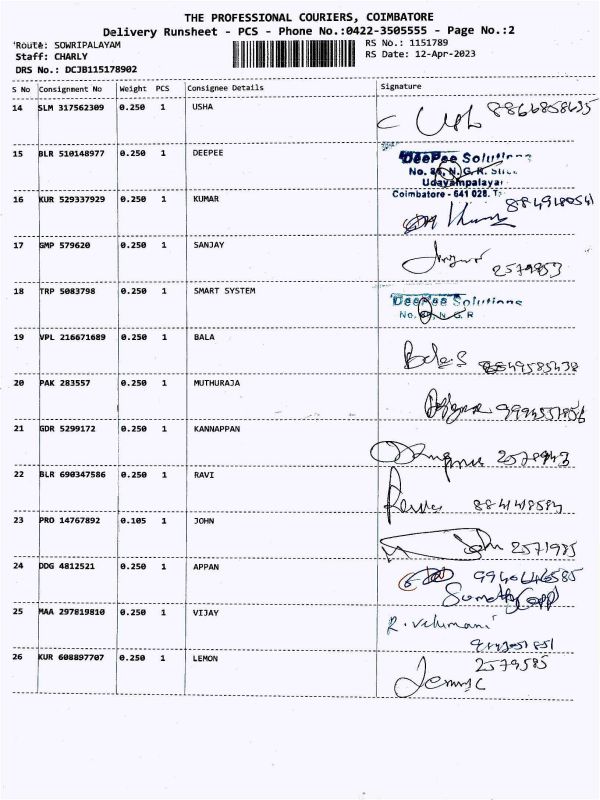 THE PROFESSIONAL COURIERS, COIMBATORE
Delivery Runsheet - PCS - Phone No.:0422-3505555 - Page No.:2
Route: SOWRIPALAYAM RS No.: 1151789
Staff: CHARLY RS Date: 12-Apr-2023
DRS No.: DCJB115178902
S No Consignment No Weight PCS Consignee Details Signature
14 SLM 317562309 0.250 1 USHA
15 BLR 510148977 0.250 1 DEEPEE DeePee Solutions
No. 86, N. G. R.
Udayampalayam
Coimbatore - 641 028.
16 KUR 529337929 0.250 1 KUMAR
17 GMP 579620 0.250 1 SANJAY
2579853
18 TRP 5083798 0.250 1 SMART SYSTEM DeePee Solutions
No. N. G. R
19 VPL 216671689 0.250 1 BALA
20 PAK 283557 0.250 1 MUTHURAJA
21 GDR 5299172 0.250 1 KANNAPPAN
22 BLR 690347586 0.250 1 RAVI
23 PRO 14767892 0.105 1 JOHN John 2571985
24 DDG 4812521 0.250 1 APPAN
25 MAA 297819810 0.250 1 VIJAY
26 KUR 608897707 0.250 1 LEMON 2579585